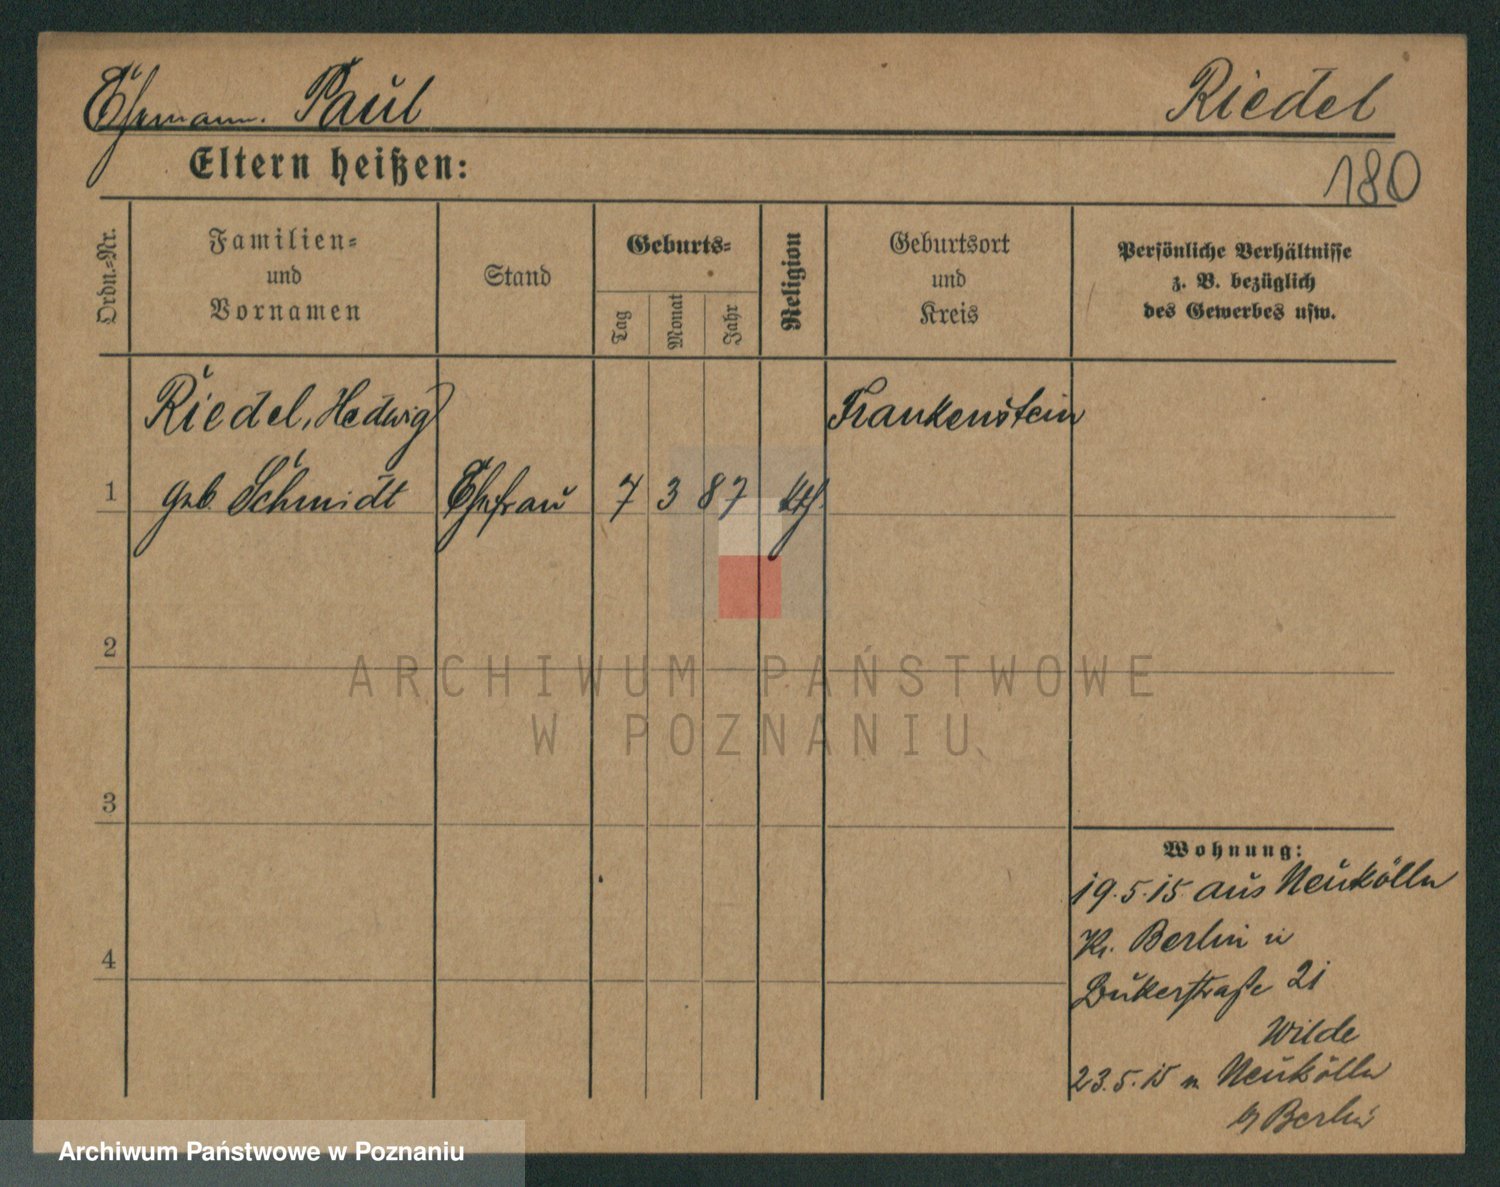 Ehemann. Paul Riedel
Eltern heißen:
180
Ordn.-Nr.
Familien-
und
Vornamen
Stand
Geburts-
Tag
Monat
Jahr
Religion
Geburtsort
und
Kreis
Persönliche Verhältnisse
z. B. bezüglich
des Gewerbes usw.
Riedel, Hedwig Frankenstein
1 geb. Schmidt Ehefrau 7 3 87 kth.
2
3
4
Wohnung:
19.5.15 aus Neukölln
Kr. Berlin n
Bukerstraße 21
Wilde
23.5.15 n. Neukölln
b/ Berlin
ARCHIWUM PAŃSTWOWE
W POZNANIU
Archiwum Państwowe w Poznaniu